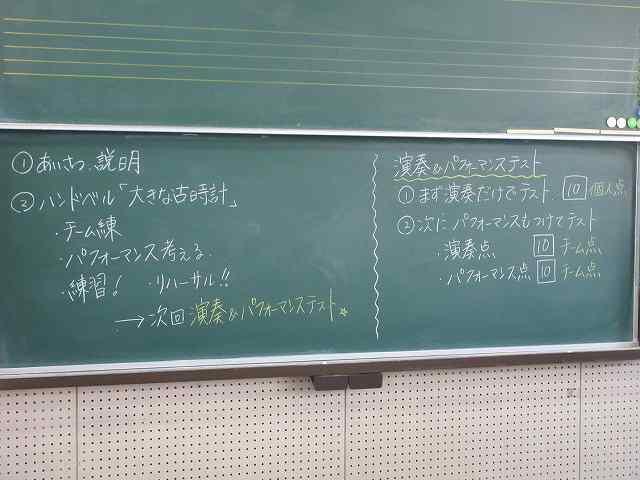 ①あいさつ、説明
②ハンドベル「大きな古時計」
・チーム練
・パフォーマンス考える
・練習! ・リハーサル!!
→次回演奏&パフォーマンステスト☆
演奏&パフォーマンステスト
①まず演奏だけでテスト 10 個人点
②次に、パフォーマンスもつけてテスト
・演奏点 10 チーム点
・パフォーマンス点 10 チーム点